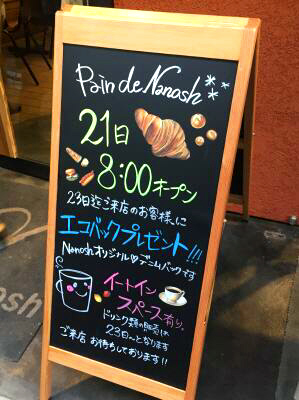 Pain de Nanosh
21日
8:00オープン
23日迄ご来店のお客様に
エコバックプレゼント!!!
Nanoshオリジナル♡デニムバックです
イートイン
スペース有り。
ドリンク類の販売は
23日〜となります
ご来店 お待ちしております!!